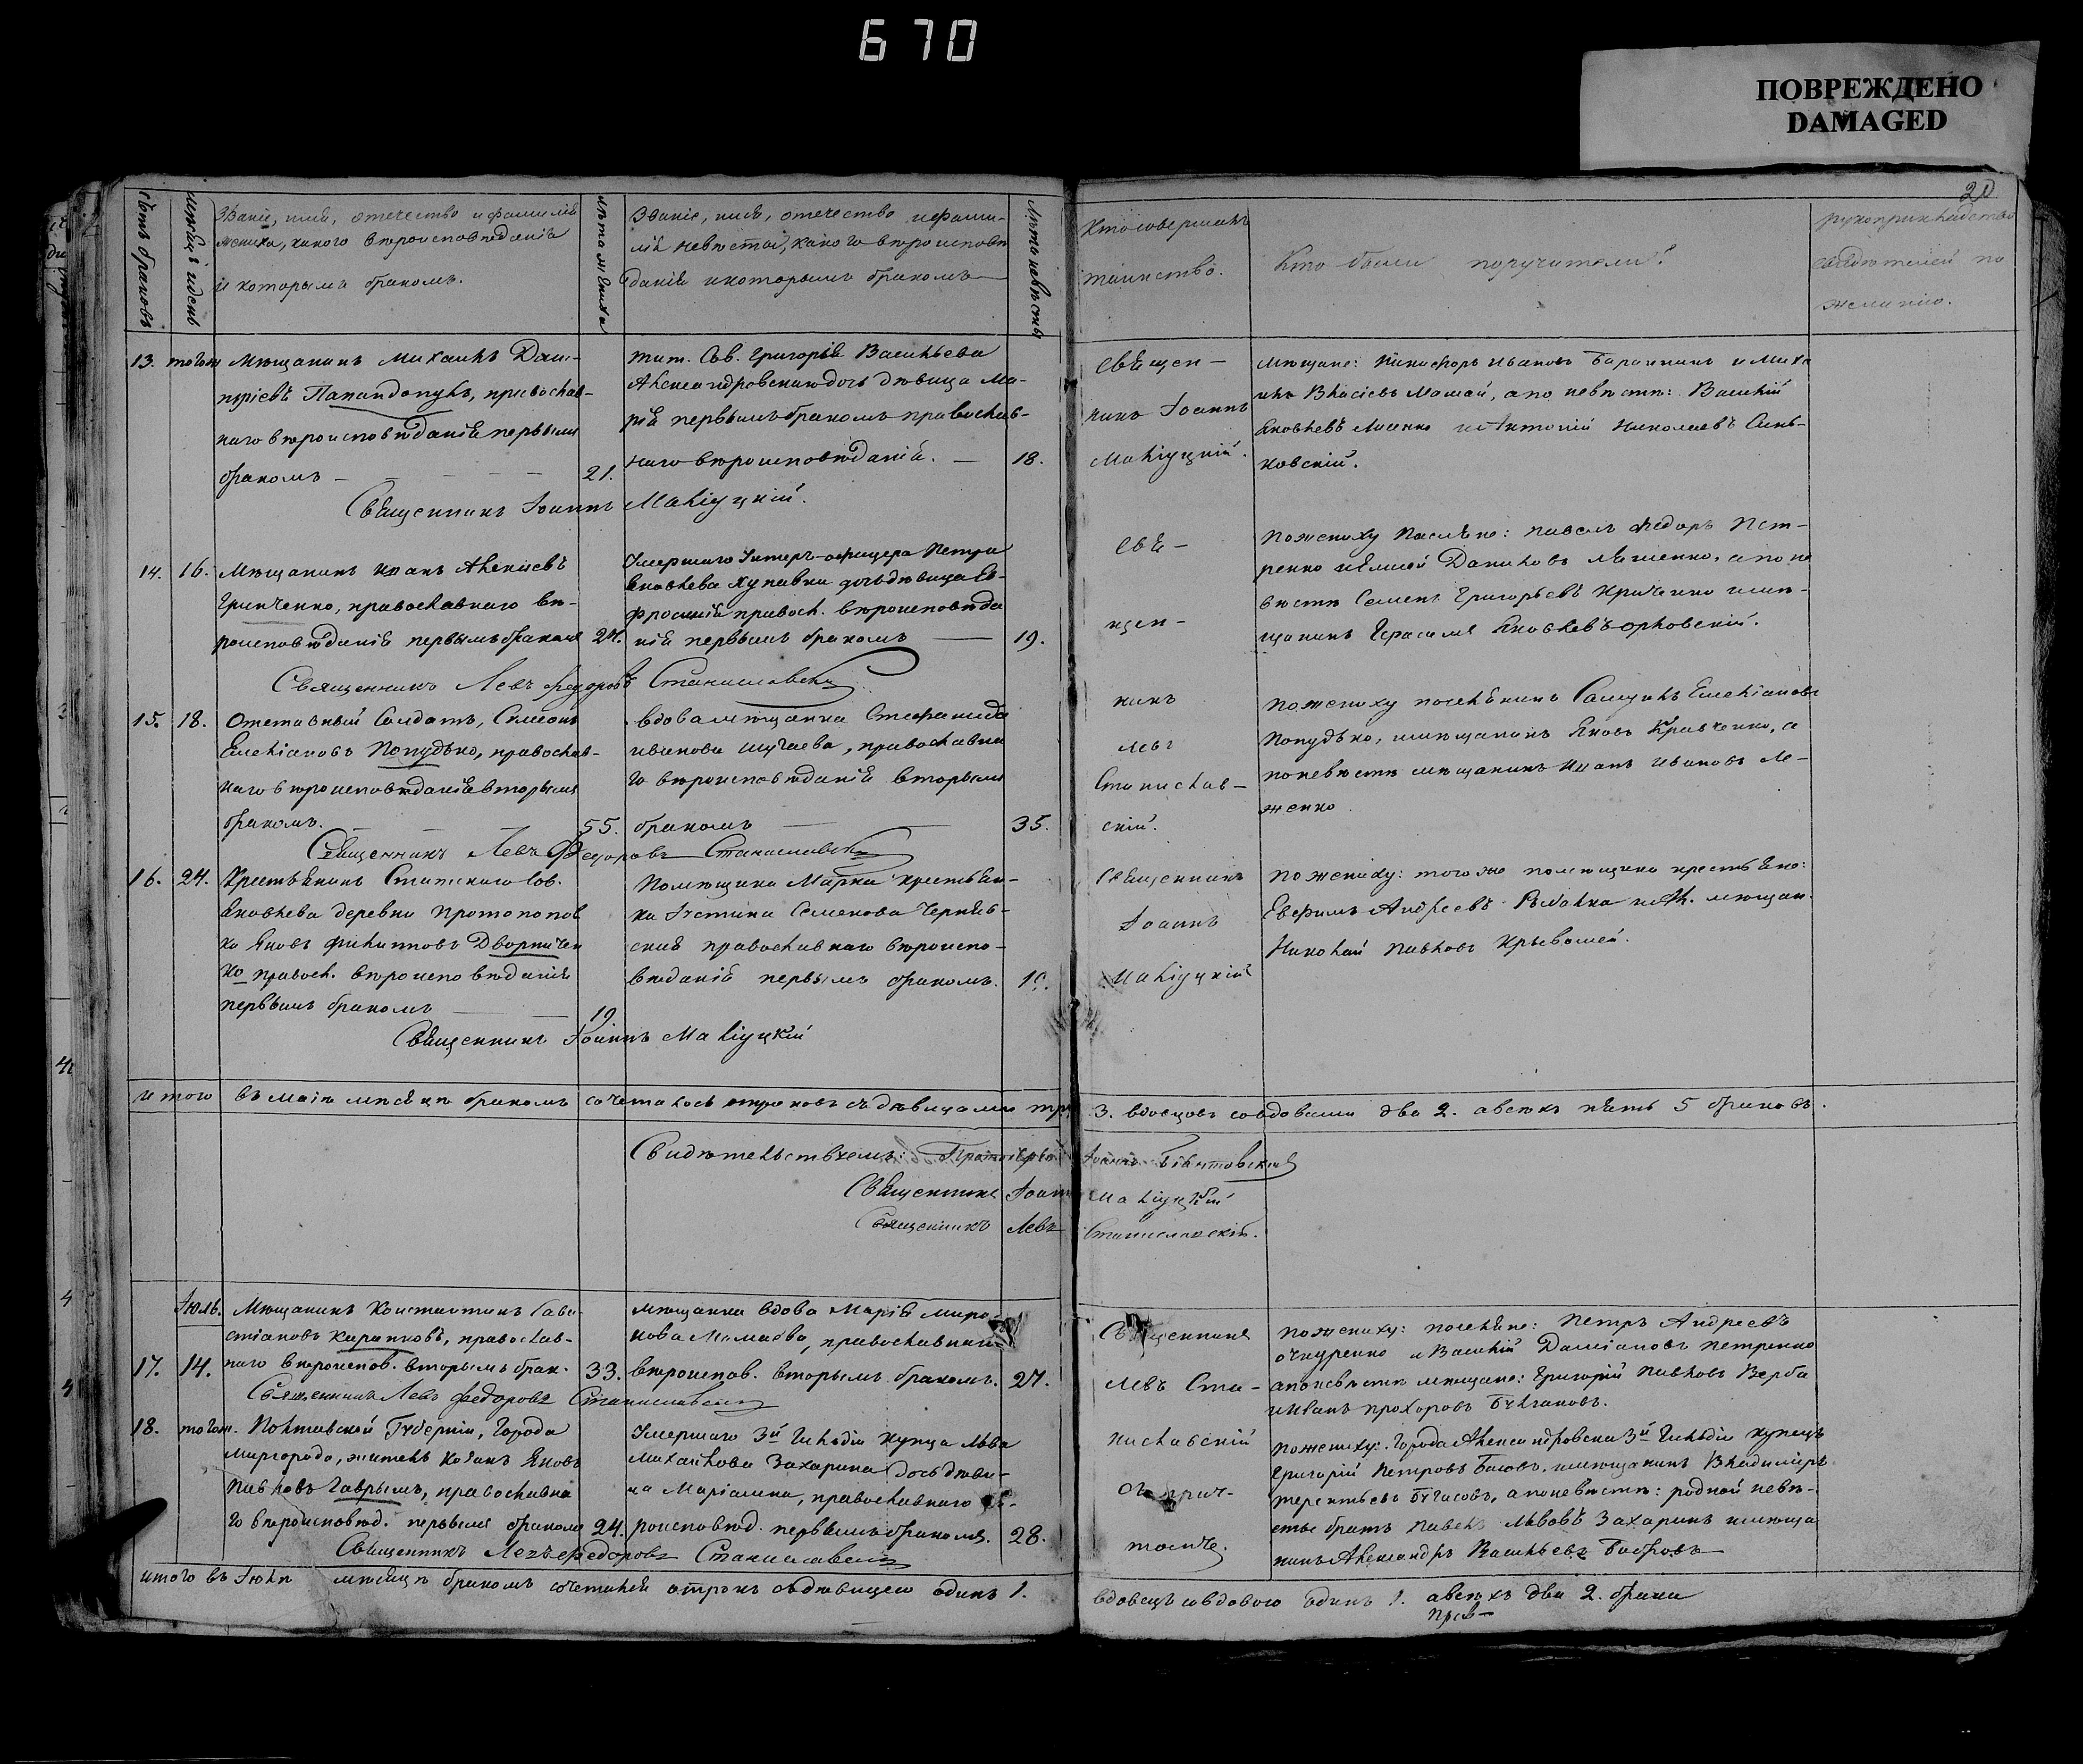 670
ПОВРЕЖДЕНО
DAMAGED
20
Счетъ браковъ
Мѣсяцъ и день
Званіе, имя, отечество и фамилія
жениха, какого вѣроисповѣданія
и которымъ бракомъ.
Лѣта жениха
Званіе, имя, отечество и фами-
лія невѣсты, какого вѣроисповѣ
данія и которымъ бракомъ
Лѣта невѣсты
Кто совершалъ
таинство.
Кто были поручители?
рукоприкладство
свидѣтелей по
желанію.
13. тогож Мѣщанинъ Михаилъ Дми-
тріевъ Папандопулъ, православ-
наго вѣроисповѣданія первымъ
бракомъ 21.
Тит. Сов. Григорія Васильева
Александровскаго дочь дѣвица Ма-
рія первымъ бракомъ православ-
наго вѣроисповѣданія. 18.
Священ-
никъ Іоаннъ
Маліуцкій.
Мѣщане: Никифоръ Ивановъ и Миха
илъ Власіевъ Мамай, а по невѣстѣ: Василій
Яковлевъ и Антоній Николаевъ Синь-
ковскій.
Священникъ Іоаннъ Маліуцкій.
14. 16. Мѣщанинъ Иванъ Алексіевъ
Гринченко, православнаго вѣ-
роисповѣданія первымъ бракомъ 24.
Умершаго Унтеръ-офицера Петра
Яковлева Купавки дочь дѣвица Ев-
фросинія правосл. вѣроисповѣда
нія первымъ бракомъ 19.
Свя-
щен-
никъ
Левъ
Станислав-
скій.
По жениху Поселяне: Павелъ Федоръ Пет-
ренко и Даниловъ Ляшенко, а по не
вѣстѣ Семенъ Григорьевъ Криченко и мѣ-
щанинъ Герасимъ Яковлевъ Орловскій.
Священникъ Левъ Федоровъ Станиславскій
15. 18. Отставный Солдатъ, Симеонъ
Емеліановъ Попудько, православ-
наго вѣроисповѣданія вторымъ
бракомъ. 55.
вдова мѣщанка Стефанида
Иванова Шугаева, православна
го вѣроисповѣданія вторымъ
бракомъ 35.
По жениху поселянинъ Самуилъ Емеліановъ
Попудько, и мѣщанинъ Яковъ Кравченко, а
по невѣстѣ мѣщанинъ Иванъ Ивановъ Ле-
женко.
Священникъ Левъ Федоровъ Станиславскій
16. 24. Крестьянинъ Статскаго Сов.
Яковлева деревни Протопопов
ко Яковъ Филипповъ Дворничен
ко правосл. вѣроисповѣданія
первымъ бракомъ 19
Помѣщика Марка крестьян-
ка Іустина Семенова Черняв-
ская православнаго вѣроиспо-
вѣданія первымъ бракомъ.
Священникъ
Іоаннъ
Маліуцкій
По жениху: того же помѣщика крестьяне:
Евфимъ Андреевъ Рыбалка и Ал. мѣщан.
Николай Павловъ Кривошей.
Священникъ Іоаннъ Маліуцкій
Итого въ маіѣ мѣсяцѣ бракомъ сочеталось отроковъ съ дѣвицами три 3. вдовцовъ со вдовами два 2. а всѣхъ пять 5 браковъ.
Свидѣтельствуемъ: Протоіерей Іоаннъ
Священникъ Іоаннъ Маліуцкій
Священникъ Левъ Станиславскій.
Іюль.
17. 14. Мѣщанинъ Константинъ Сава-
стіановъ Карапковъ, православ-
наго вѣроиспов. вторымъ брак. 33.
мѣщанка вдова Марія Миро-
нова Мамаева, православнаго
вѣроиспов. вторымъ бракомъ. 27.
Священникъ
Левъ Ста-
ниславскій
съ прич-
томъ.
По жениху: поселяне: Петръ Андреевъ
Очкуренко и Василій Даміановъ Петренко
а по невѣстѣ мѣщане: Григорій Павловъ Верба
и Иванъ Прохоровъ Булгаковъ.
Священникъ Левъ Федоровъ Станиславскій
18. тогож. Полтавской Губерніи, Города
Миргорода, житель козакъ Яковъ
Павловъ Гаврышъ, православна
го вѣроисповѣд. первымъ бракомъ 24.
Умершаго 3й Гильдіи Купца Льва
Михайлова Захарина дочь дѣви-
ца Маріамна, православнаго вѣ-
роисповѣд. первымъ бракомъ. 28.
По жениху: Города Александровска 3й Гильдіи купецъ
Григорій Петровъ Басовъ, и мѣщанинъ Владиміръ
Терентьевъ, а по невѣстѣ: родной невѣ-
стѣ братъ Павелъ Львовъ Захаринъ и мѣща
нинъ Александръ Васильевъ Бобровъ
Священникъ Левъ Федоровъ Станиславскій
Итого въ Іюлѣ мѣсяцѣ бракомъ сочетался отрокъ съ дѣвицею одинъ 1. вдовецъ со вдовою одинъ 1. а всѣхъ два 2. брака